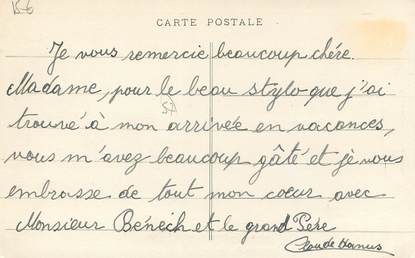 15-6
CARTE POSTALE
Je vous remercie beaucoup chére.
Madame, pour le beau stylo que j'ai
57
trouvé à mon arrivée en vacances,
vous m'avez beaucoup gâté et je vous
embrasse de tout mon cœur avec
Monsieur Bénech et le grand Père
Claude